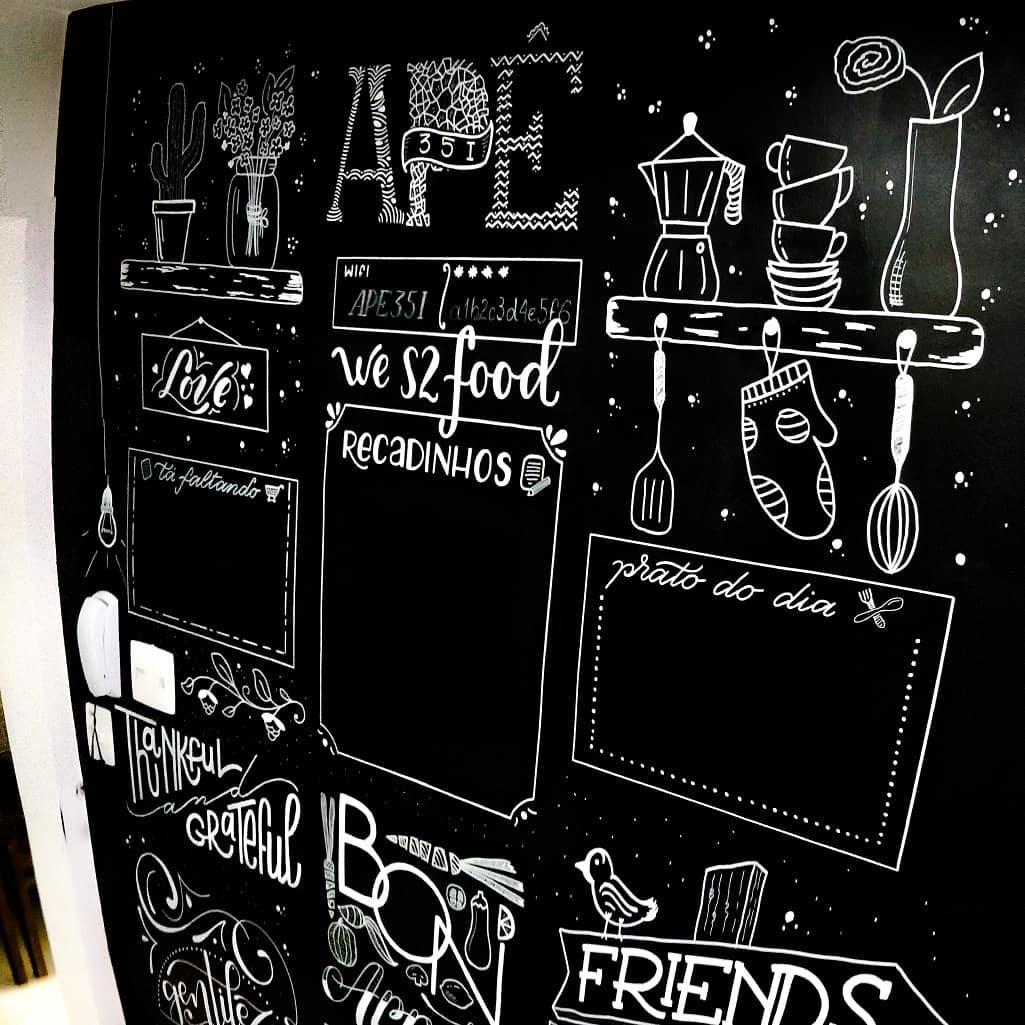 APÊ
351
WIFI
****
APE351
a1b2c3d4e5f6
we S2 food
Love
RECADINHOS
tá faltando
prato do dia
THANKFUL
and
GRATEFUL
BON
App
FRIENDS
gentile